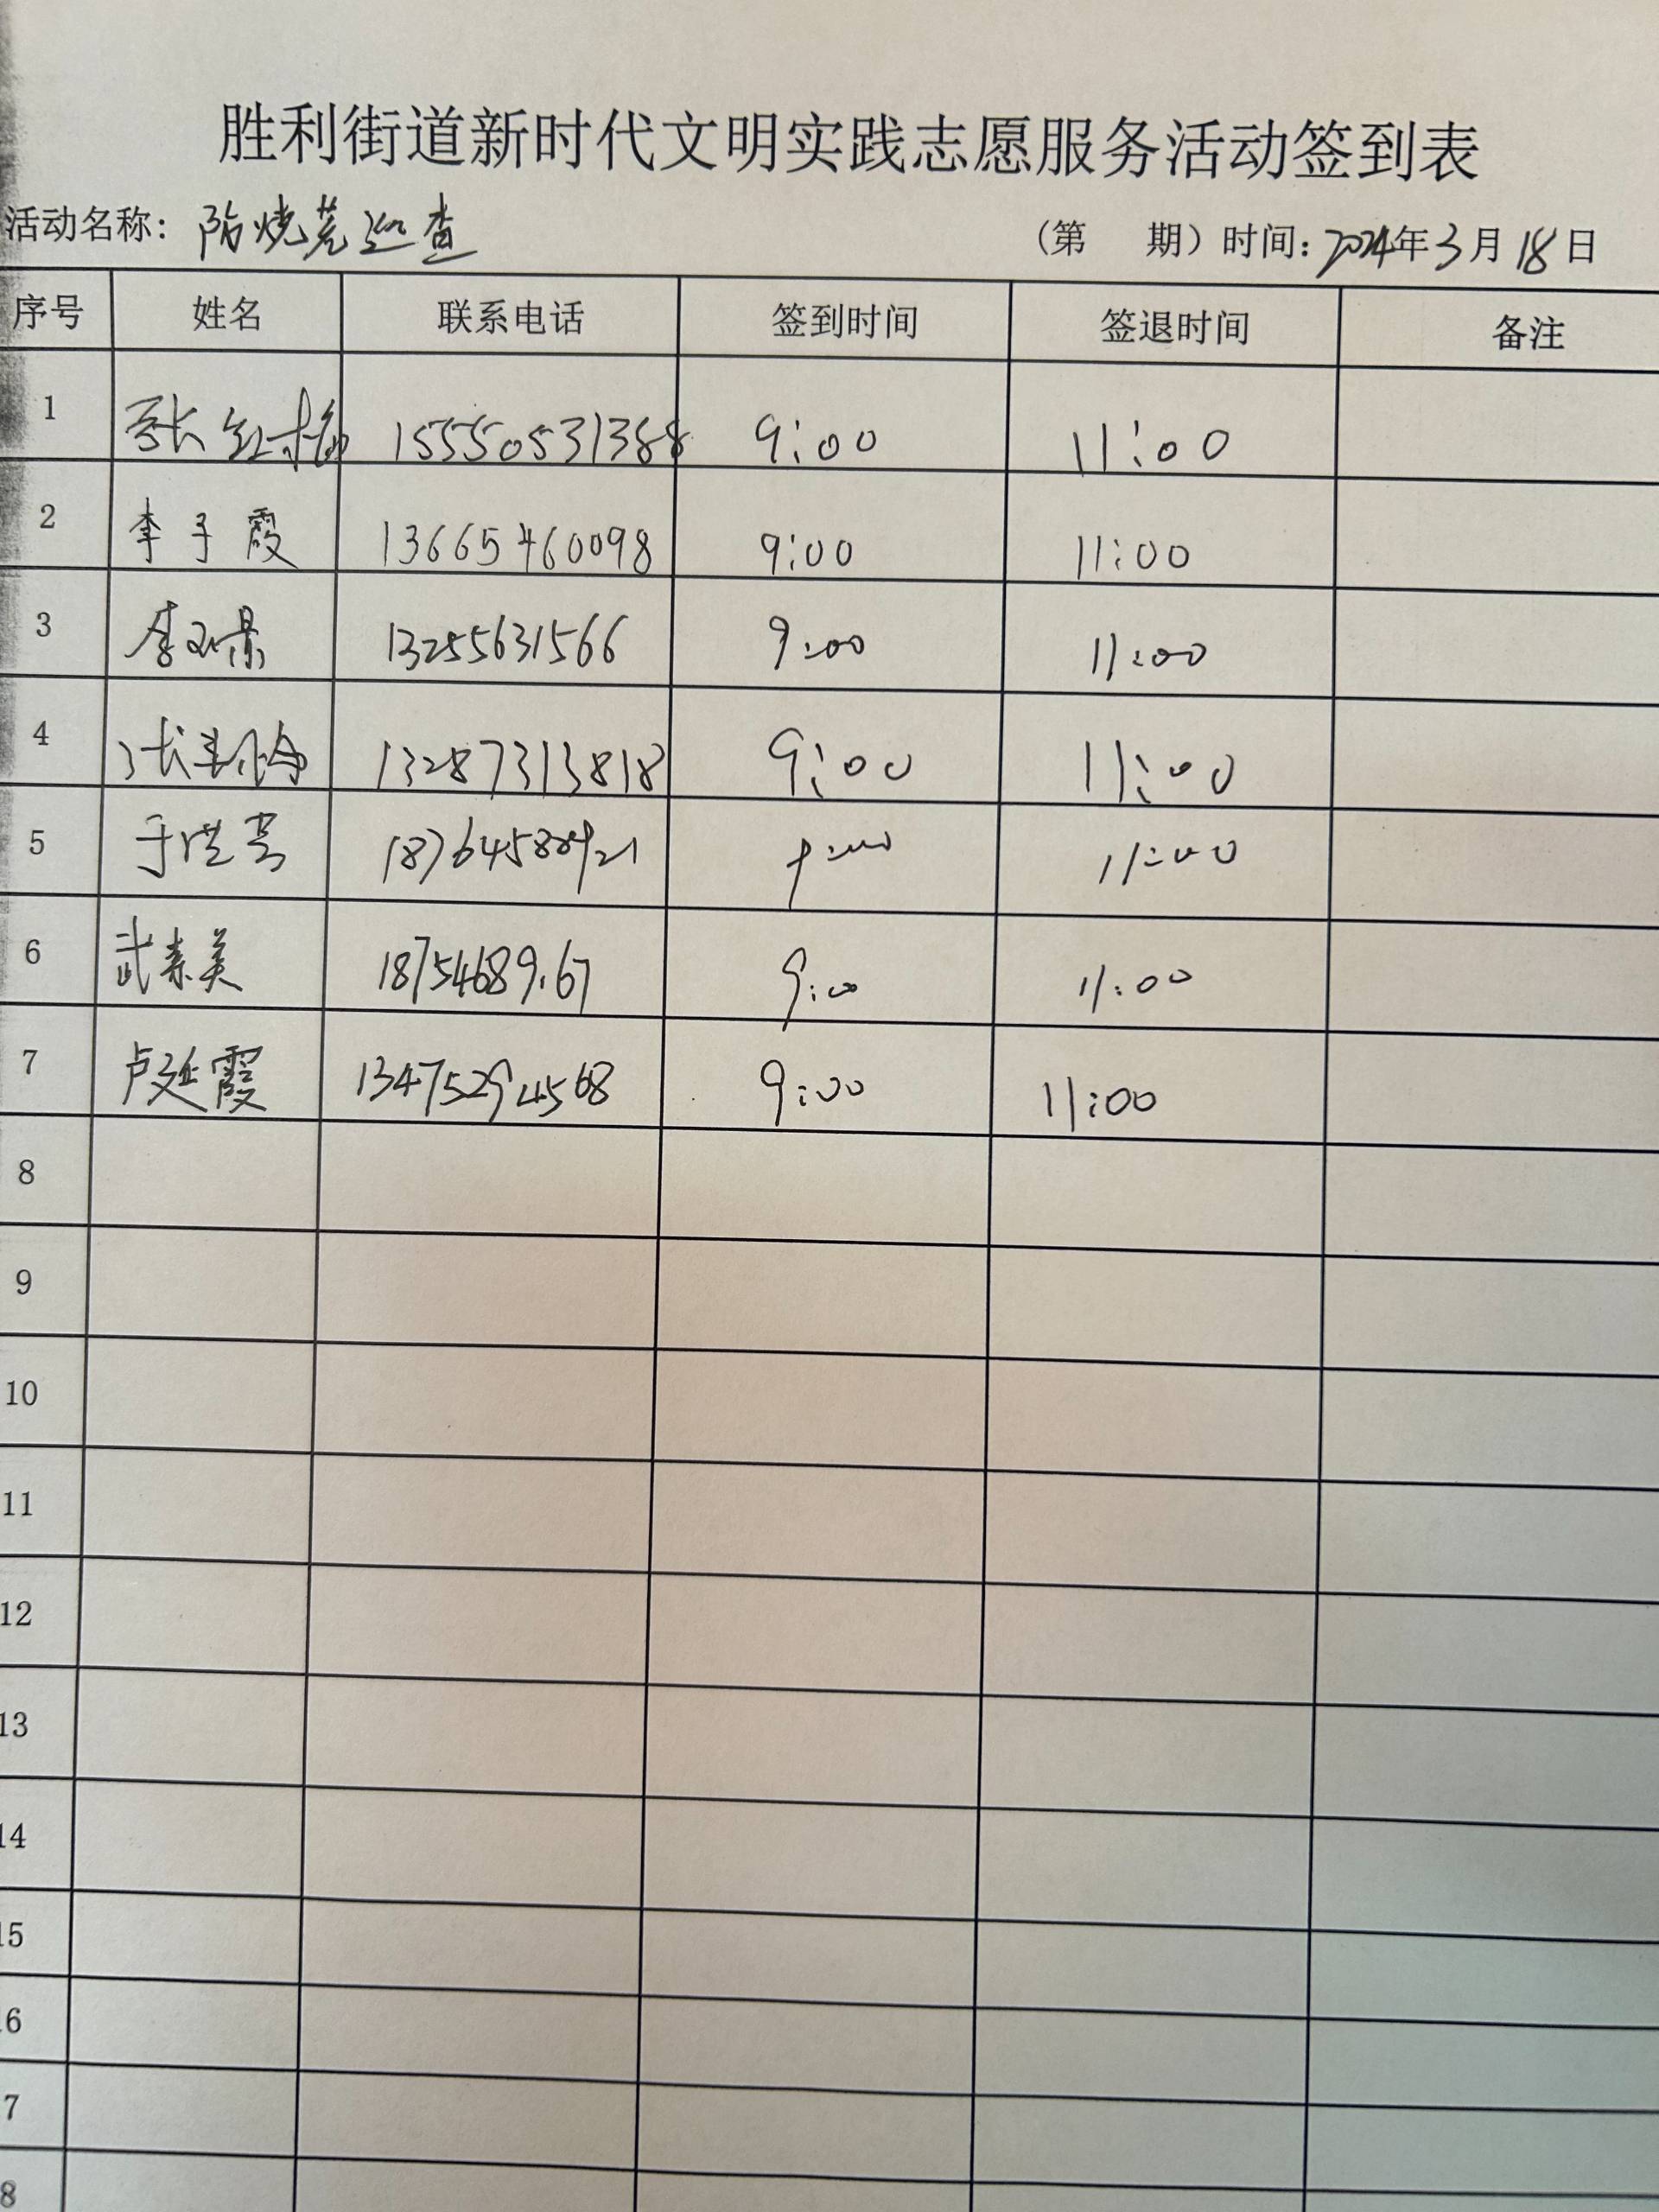 胜利街道新时代文明实践志愿服务活动签到表
活动名称：防烧荒巡查 （第 期）时间：2024年3月18日
序号 姓名 联系电话 签到时间 签退时间 备注
1 张红梅 15550531388 9:00 11:00
2 李于霞 13665460098 9:00 11:00
3 李 13255631566 9:00 11:00
4 张 13287313818 9:00 11:00
5 于 9:00 11:00
6 武素美 9:00 11:00
7 卢延霞 13475294568 9:00 11:00
8
9
10
11
12
13
14
15
6
7
8